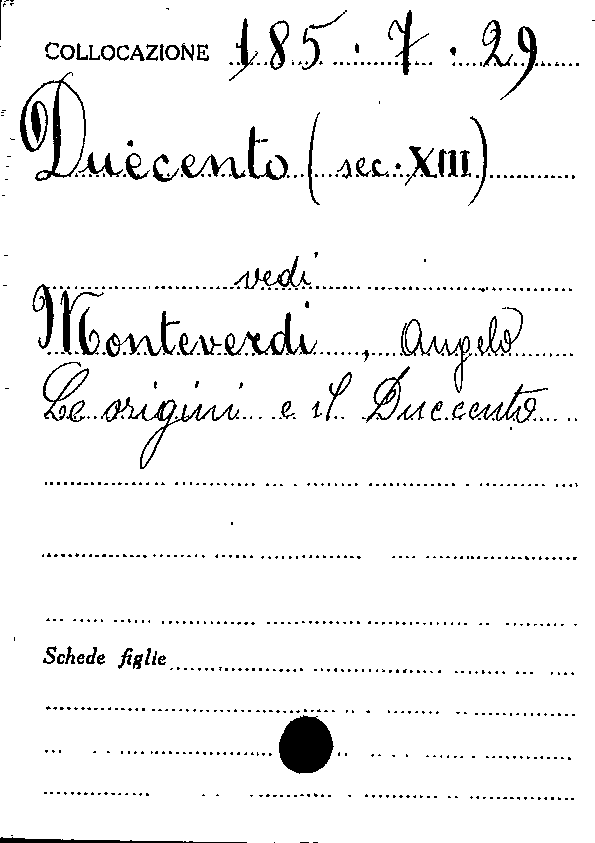 COLLOCAZIONE 185.7.29
Duecento (sec. XIII)
vedi
Monteverdi, Angelo
Le origini e il Duecento
Schede figlie